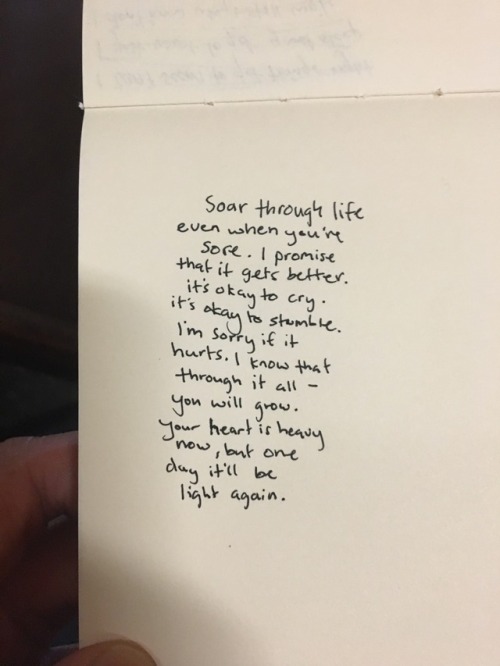 Soar through life
even when you're
sore. I promise
that it gets better.
it's okay to cry.
it's okay to stumble.
I'm sorry if it
hurts. I know that
through it all -
you will grow.
your heart is heavy
now, but one
day it'll be
light again.